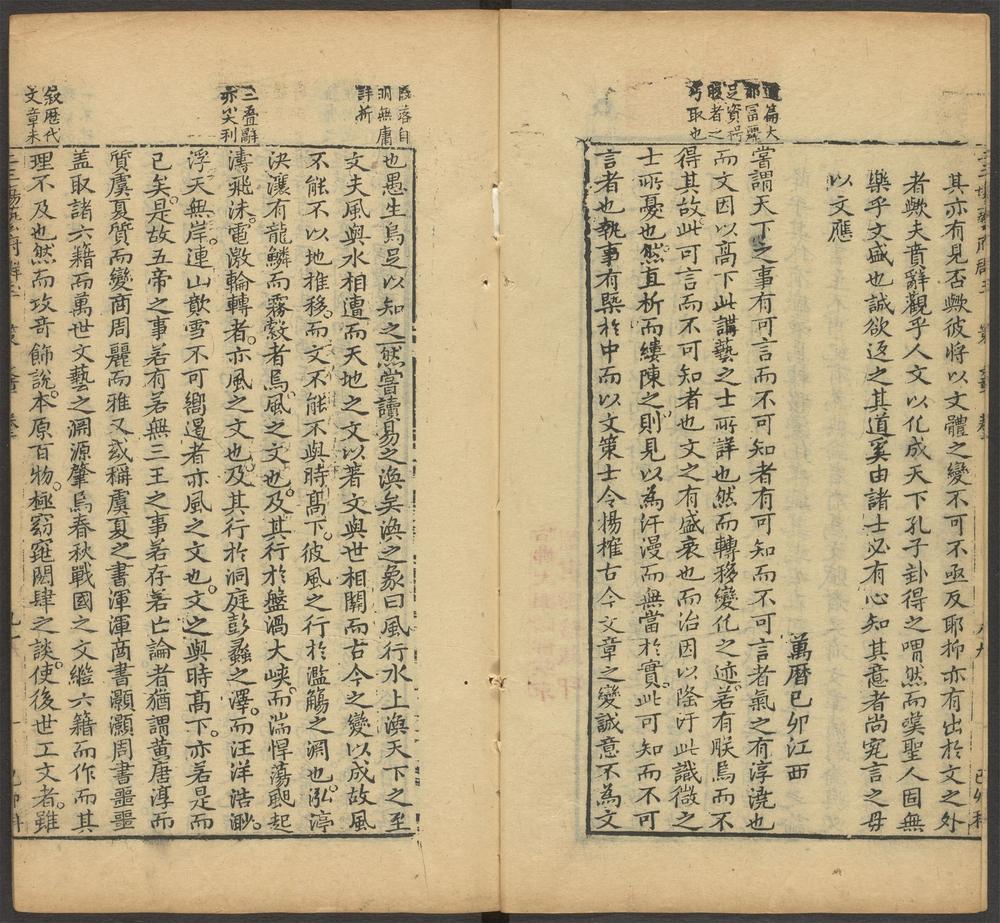 其亦有見否歟彼將以文體之變不可不亟反耶抑亦有出於文之外
者歟夫音辭觀乎人文以化成天下孔子卦得之喟然而嘆聖人因無
樂乎文盛也誠欲返之其道奚由諸士必有心知其意者尚究言之毋
以文應
萬曆己卯江西
篇大
富麗
足資捋
腹者之
取也
嘗謂天下之事有可言而不可知者有可知而不可言者氣之有淳澆也
而文因以高下此講藝之士所詳也然而轉移變化之迹若有朕焉而不
得其故此可言而不可知者也文之有盛衰也而治因以隆汙此識微之
士所憂也然直析而縷陳之則見以為汗漫而無當於實此可知而不可
言者也執事有槩於中而以文策士令揚榷古今文章之變誠意不為文
也愚生烏足以知之然嘗讀易之渙矣渙之象曰風行水上渙天下之至
段落自
明無庸
詳折
文夫風與水相遭而天地之文以著文與世相關而古今之變以成故風
不能不以地推移而文不能不與時高下彼風之行於濫觴之淵也泓渟
決瀼有龍鱗而霧縠者焉風之文也及其行於盤渦大峽而湍悍蕩颶起
三疊辭
亦尖利
濤飛沫電激輪轉者亦風之文也及其行於洞庭彭蠡之澤而汪洋浩渺
浮天無岸連山歕雪不可嚮邇者亦風之文也文之與時高下亦若是而
已矣是故五帝之事若有若無三王之事若存若亡論者猶謂黃唐淳而
質虞夏質而變商周麗而雅又或稱虞夏之書渾渾商書灝灝周書噩噩
蓋取諸六籍而萬世文藝之淵源肇焉春秋戰國之文繼六籍而作而其
敘歷代
文章未
理不及也然而攻奇飾說本原百物極窈窕閎肆之談使後世工文者雖